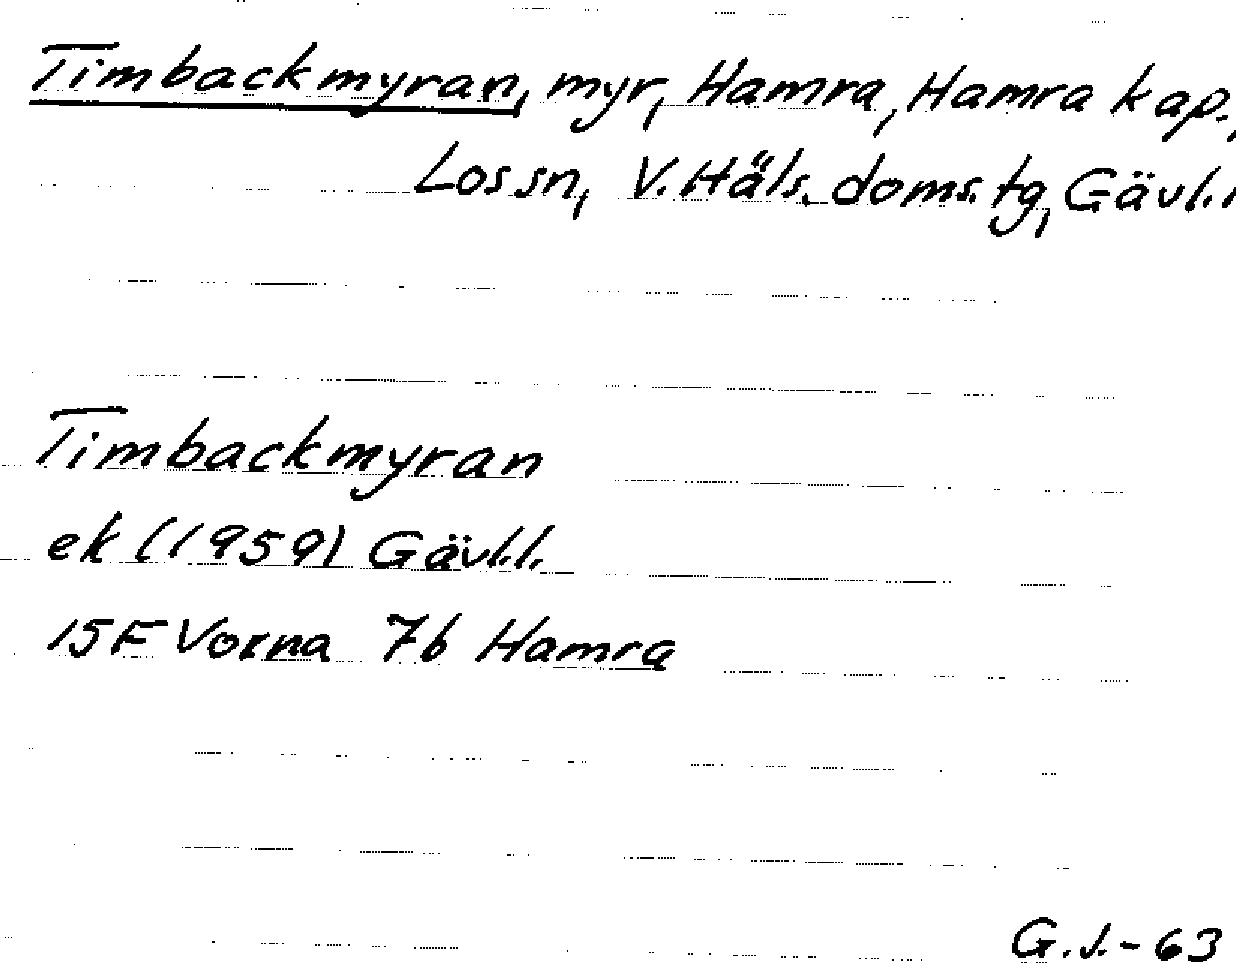 Timbackmyran, myr, Hamra, Hamra kap.,
Los sn, V. Häls. doms. tg, Gävl. l
Timbackmyran
ek (1959) Gävl. l.
15F Voxna 7b Hamra
G.J.-63